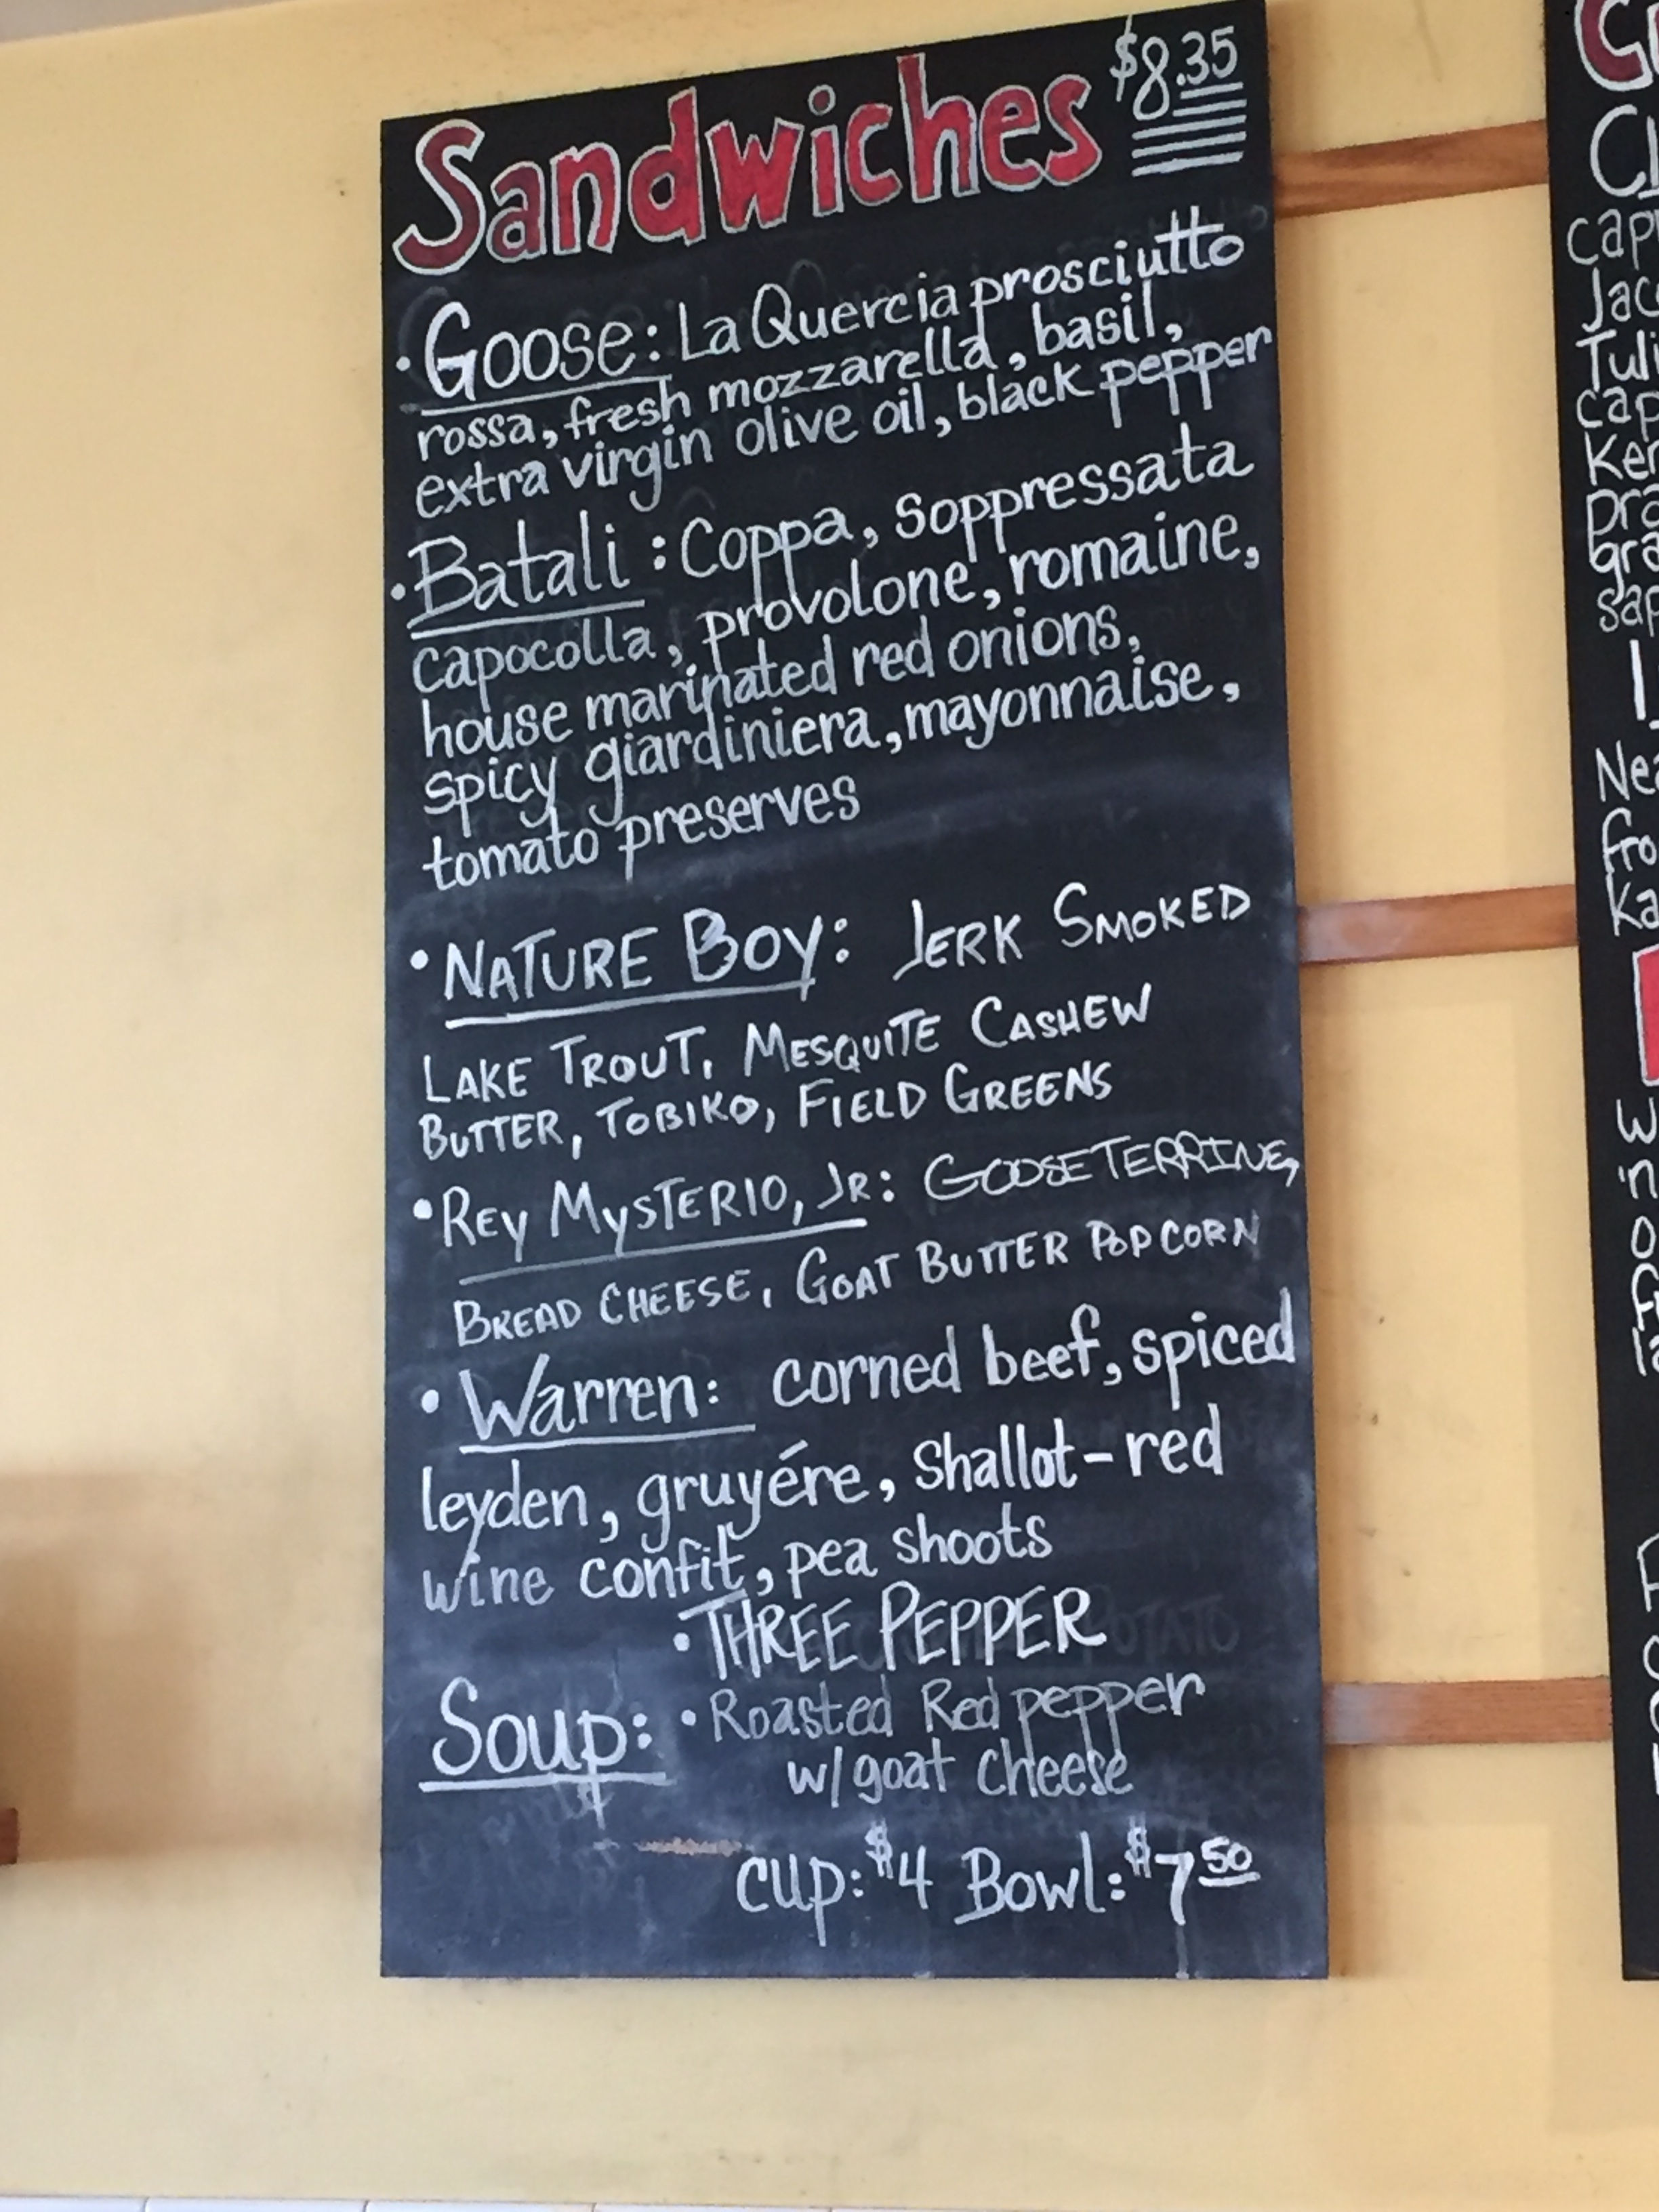 Sandwiches $8.35
• Goose: La Quercia prosciutto
rossa, fresh mozzarella, basil,
extra virgin olive oil, black pepper
• Batali: Coppa, Soppressata
capocolla, provolone, romaine,
house marinated red onions,
spicy giardiniera, mayonnaise,
tomato preserves
• NATURE BOY: JERK SMOKED
LAKE TROUT, MESQUITE CASHEW
BUTTER, TOBIKO, FIELD GREENS
• REY MYSTERIO, JR: GOOSE TERRINE,
BREAD CHEESE, GOAT BUTTER POPCORN
• Warren: corned beef, spiced
leyden, gruyére, shallot-red
wine confit, pea shoots
• THREE PEPPER
Soup: • Roasted Red pepper
w/ goat cheese
cup: $4 Bowl: $7 50